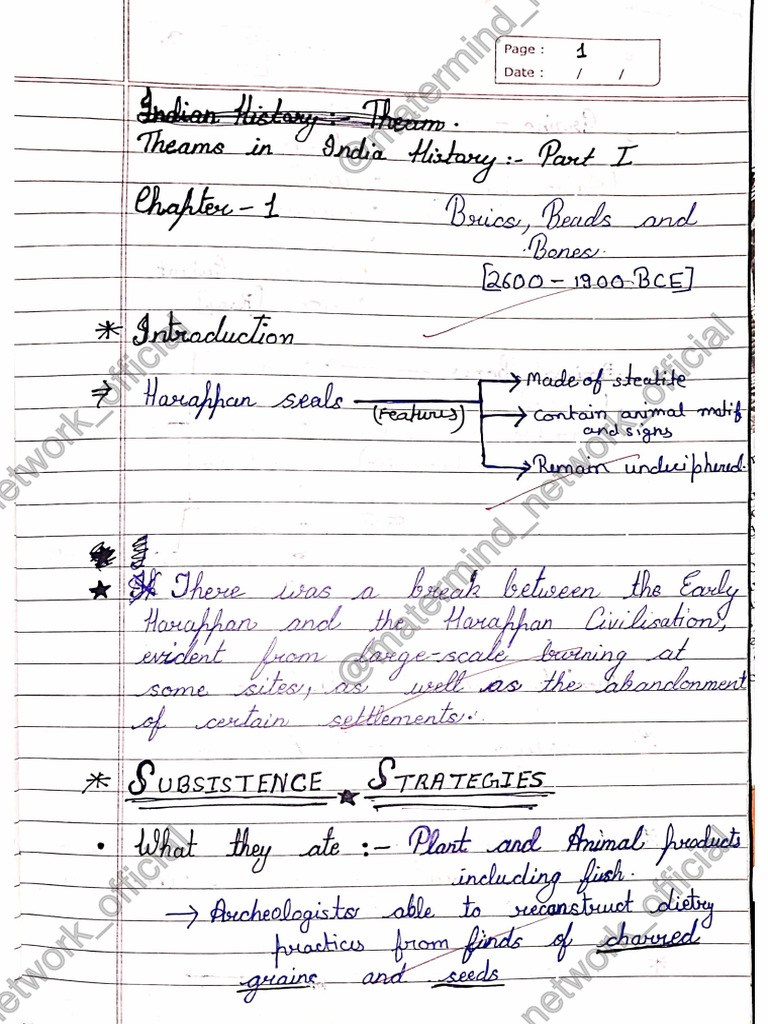 Page : 1
Date : / /
Indian History :- Theam.
Theams in India History :- Part I
Chapter - 1 Brics, Beads and
Bones.
[2600 - 1900 BCE]
* Introduction
⇒ Harappan seals (Features) → Made of steatite
→ contain animal motif
and signs
→ Remain undeciphered.
★ There was a break between the Early
Harappan and the Harappan Civilisation,
evident from large-scale burning at
some sites, as well as the abandonment
of certain settlements.
* SUBSISTENCE ★ STRATEGIES
• What they ate :- Plant and Animal products
including fish.
→ Archeologists able to reconstruct dietry
practices from finds of charred
grains and seeds
@matermind_network_official
@matermind_network_official
network_official
network_official